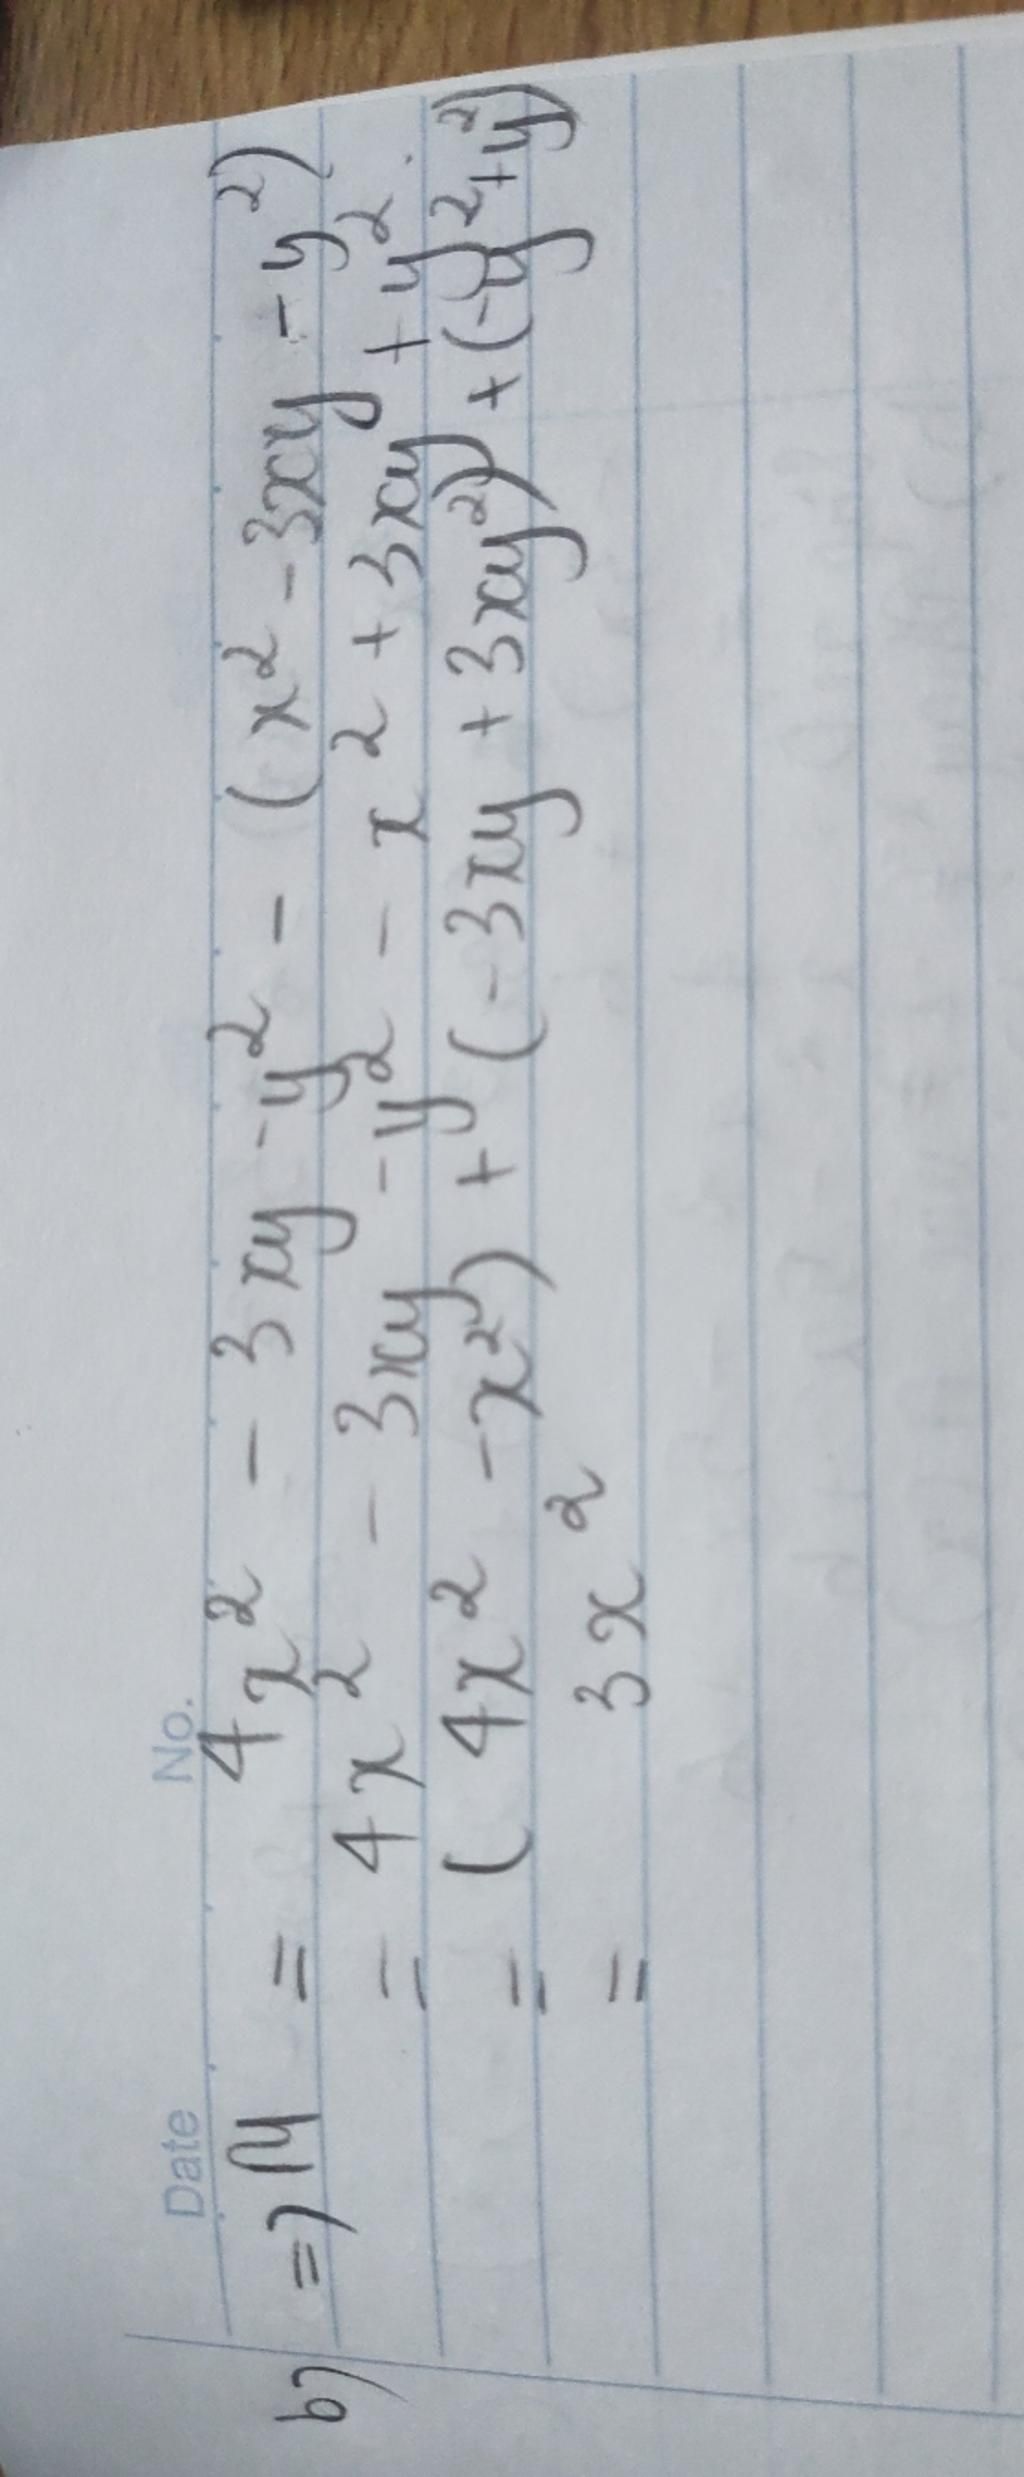 Date No.
b) => M = 4x² - 3xy - y² - (x² - 3xy - y²)
= 4x² - 3xy - y² - x² + 3xy + y².
= (4x² - x²) + (-3xy + 3xy²) + (-y² + y²)
= 3x²